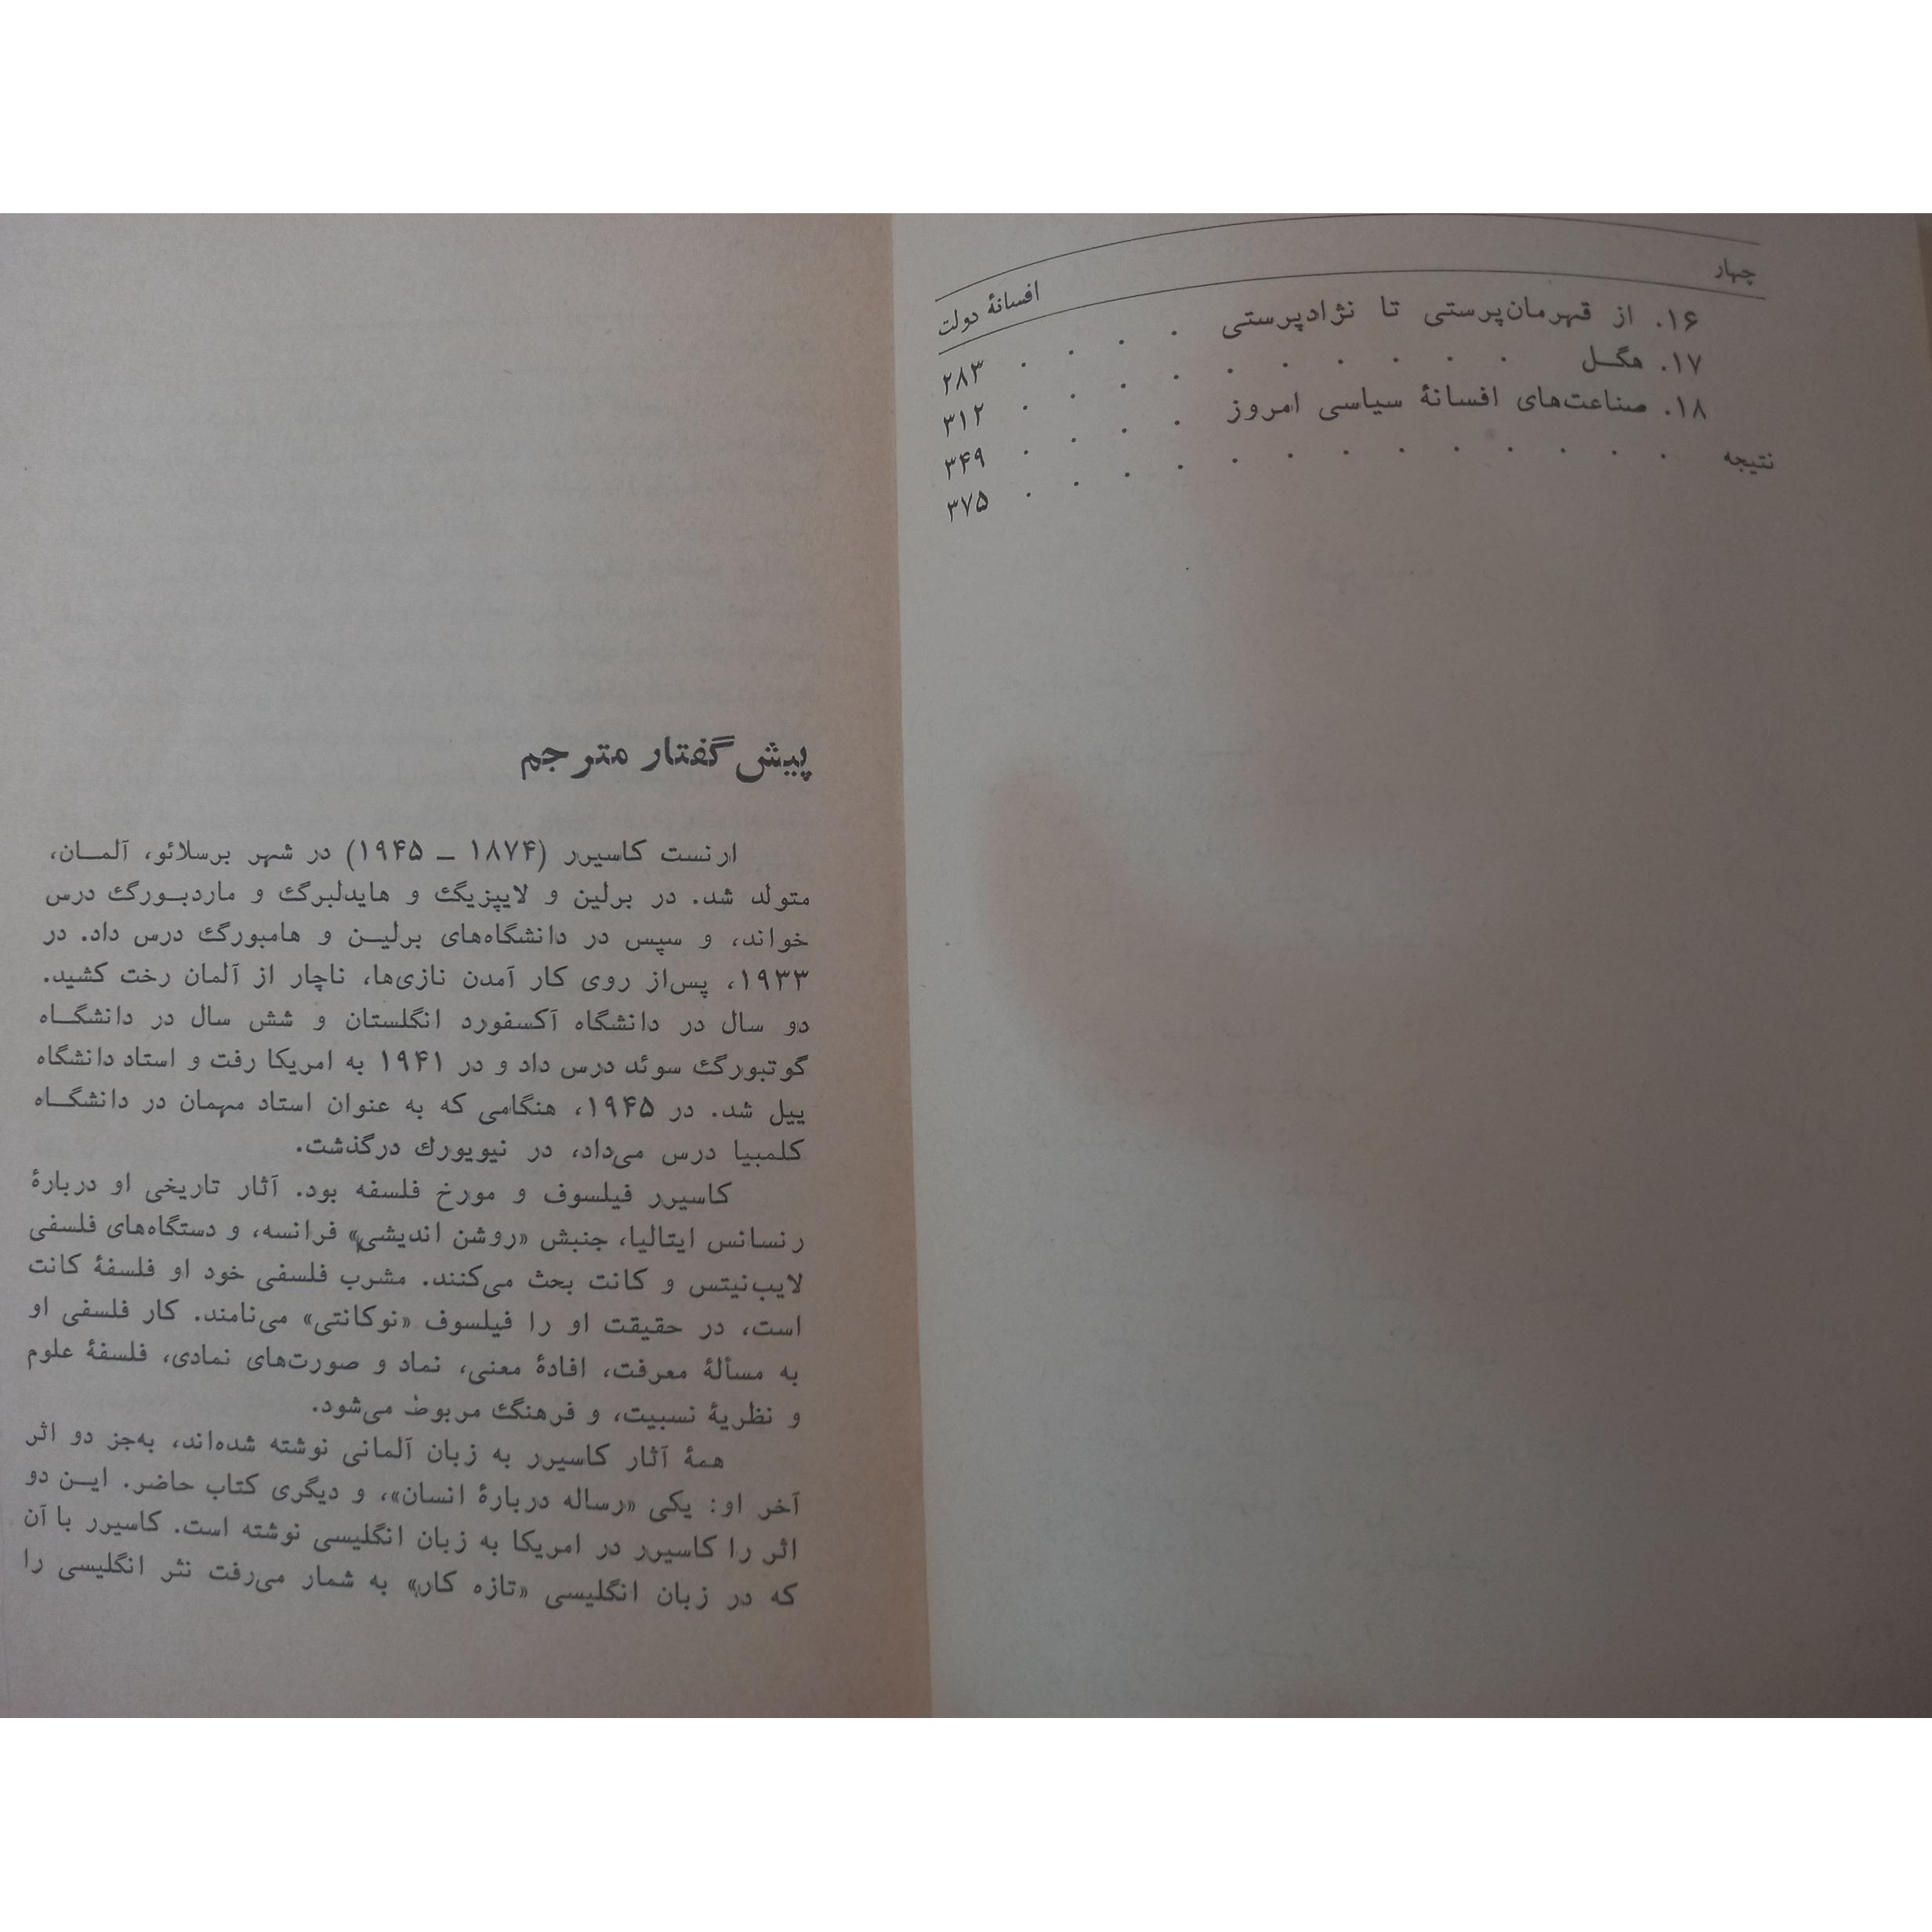 چهار
افسانهٔ دولت
۱۶. از قهرمان‌پرستی تا نژادپرستی . . . . ۲۸۳
۱۷. هگـل . . . . . . . . . . ۳۱۲
۱۸. صناعت‌های افسانهٔ سیاسی امروز . . . . ۳۴۹
نتیجه . . . . . . . . . . . . . ۳۷۵
پیش‌گفتار مترجم
ارنست کاسیرر (۱۸۷۴ ـ ۱۹۴۵) در شهر برسلائو، آلمـان،
متولد شد. در برلین و لایپزیگ و هایدلبرگ و ماردبـورگ درس
خواند، و سپس در دانشگاه‌های برلیـن و هامبورگ درس داد. در
۱۹۳۳، پس‌از روی کار آمدن نازی‌ها، ناچار از آلمان رخت کشید.
دو سال در دانشگاه آکسفورد انگلستان و شش سال در دانشگـاه
گوتبورگ سوئد درس داد و در ۱۹۴۱ به امریکا رفت و استاد دانشگاه
ییل شد. در ۱۹۴۵، هنگامی که به عنوان استاد مهمان در دانشگـاه
کلمبیا درس می‌داد، در نیویورك درگذشت.
کاسیرر فیلسوف و مورخ فلسفه بود. آثار تاریخی او دربارهٔ
رنسانس ایتالیا، جنبش «روشن اندیشی» فرانسه، و دستگاه‌های فلسفی
لایب‌نیتس و کانت بحث می‌کنند. مشرب فلسفی خود او فلسفهٔ کانت
است، در حقیقت او را فیلسوف «نوکانتی» می‌نامند. کار فلسفی او
به مسألهٔ معرفت، افادهٔ معنی، نماد و صورت‌های نمادی، فلسفهٔ علوم
و نظریهٔ نسبیت، و فرهنگ مربوط می‌شود.
همهٔ آثار کاسیرر به زبان آلمانی نوشته شده‌اند، به‌جز دو اثر
آخر او: یکی «رساله دربارهٔ انسان»، و دیگری کتاب حاضر. ایـن دو
اثر را کاسیرر در امریکا به زبان انگلیسی نوشته است. کاسیرر با آن
که در زبان انگلیسی «تازه کار» به شمار می‌رفت نثر انگلیسی را